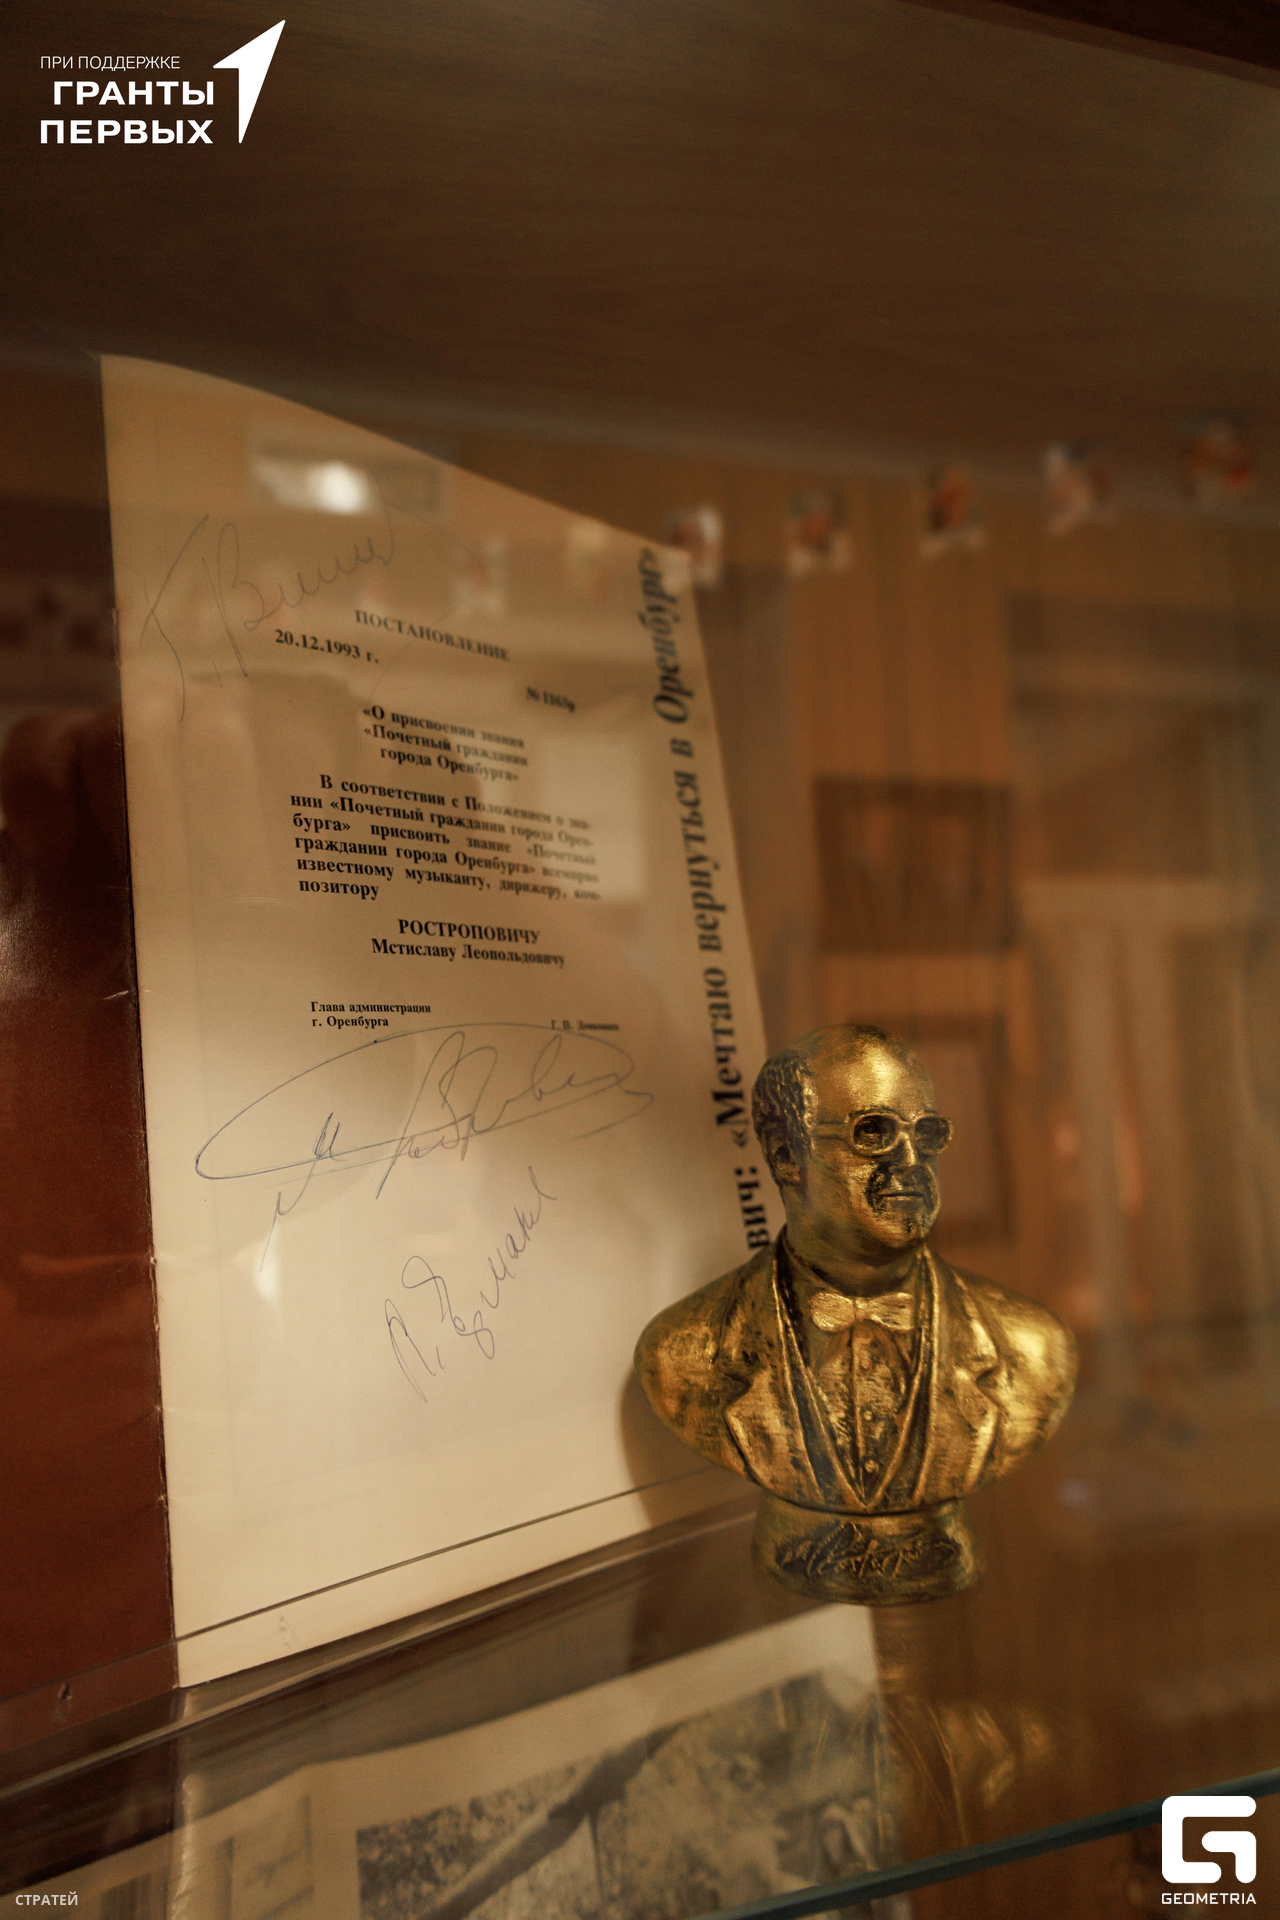 ПРИ ПОДДЕРЖКЕ
ГРАНТЫ
ПЕРВЫХ
ПОСТАНОВЛЕНИЕ
20.12.1993 г.
№ 1165р
«О присвоении звания
«Почетный гражданин
города Оренбурга»
В соответствии с Положением о зва-
нии «Почетный гражданин города Орен-
бурга» присвоить звание «Почетный
гражданин города Оренбурга» всемирно
известному музыканту, дирижеру, ком-
позитору
РОСТРОПОВИЧУ
Мстиславу Леопольдовичу
Глава администрации
г. Оренбурга
Г. П.
вич: «Мечтаю вернуться в Оренбург»
СТРАТЕЙ
GEOMETRIA